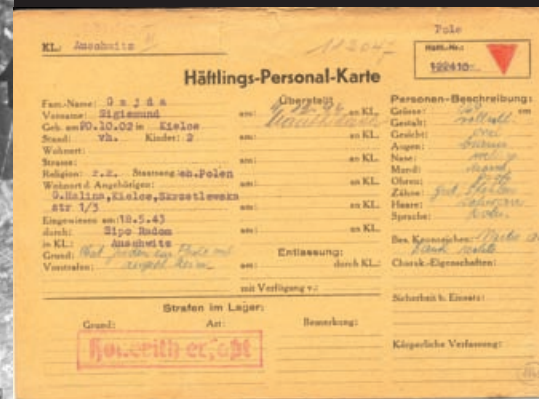 Pole
KL: Auschwitz II
11204
Häftl.-Nr.:
122410
Häftlings-Personal-Karte
Fam.-Name: Gajda
Vorname: Sigismund
Geb. am 20.10.02 in Kielce
Stand: vh. Kinder: 2
Wohnort:
Strasse:
Religion: r.k. Staatsang. eh.Polen
Wohnort d. Angehörigen:
G.Halina, Kielce, Skrzetlewska
str 1/3
Eingewiesen am: 18.5.43
durch: Sipo Radom
in KL.: Auschwitz
Grund:
Vorstrafen:
Überstellt
am: an KL.
am: an KL.
am: an KL.
am: an KL.
am: an KL.
am: an KL.
Entlassung:
am: durch KL.:
mit Verfügung v.:
Personen-Beschreibung:
Grösse: cm
Gestalt:
Gesicht: oval
Augen:
Nase:
Mund:
Ohren:
Zähne:
Haare:
Sprache:
Bes. Kennzeichen:
Charak.-Eigenschaften:
Sicherheit b. Einsatz:
Körperliche Verfassung:
Strafen im Lager:
Grund: Art: Bemerkung:
Hollerith erfaßt